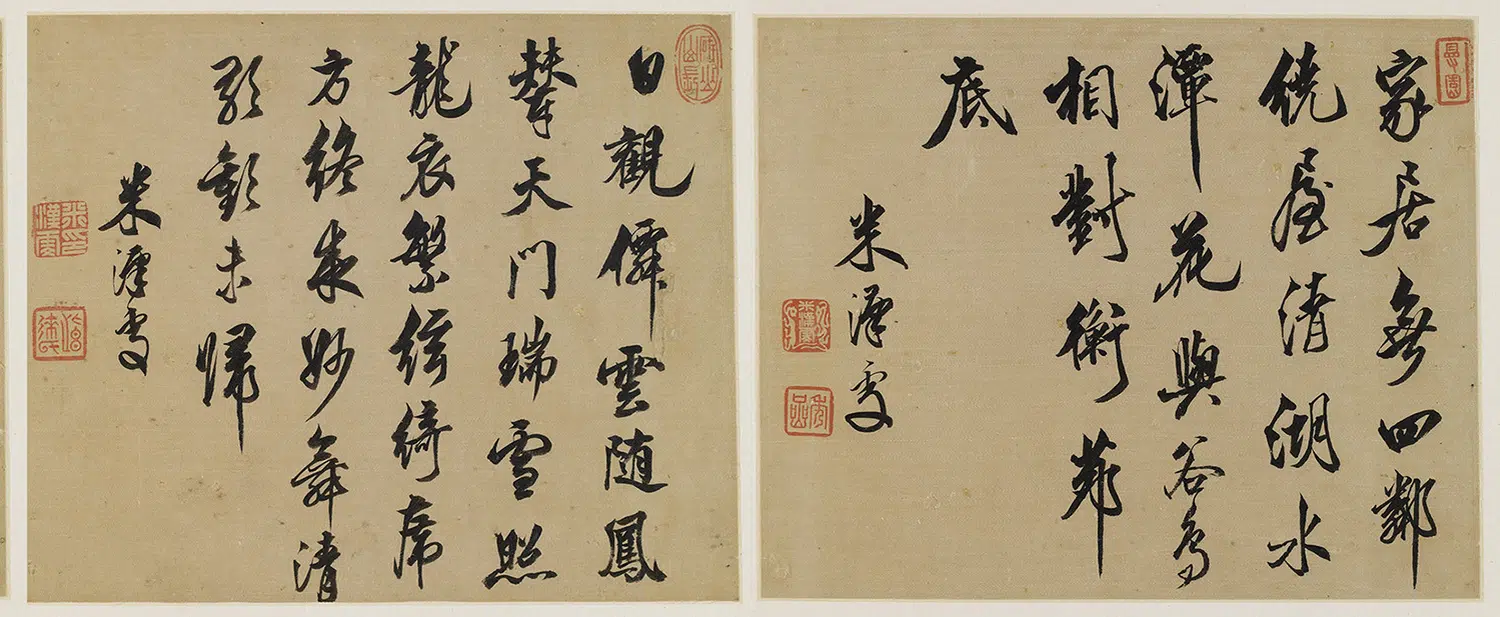 家居無四鄰
繞屋清湖水
潭花與谷鳥
相對衡茆
底
米漢雯
日觀僊雲隨鳳
輦天門瑞雪照
龍衣繁絃綺席
方終夜妙舞清
歌歡未歸
米漢雯